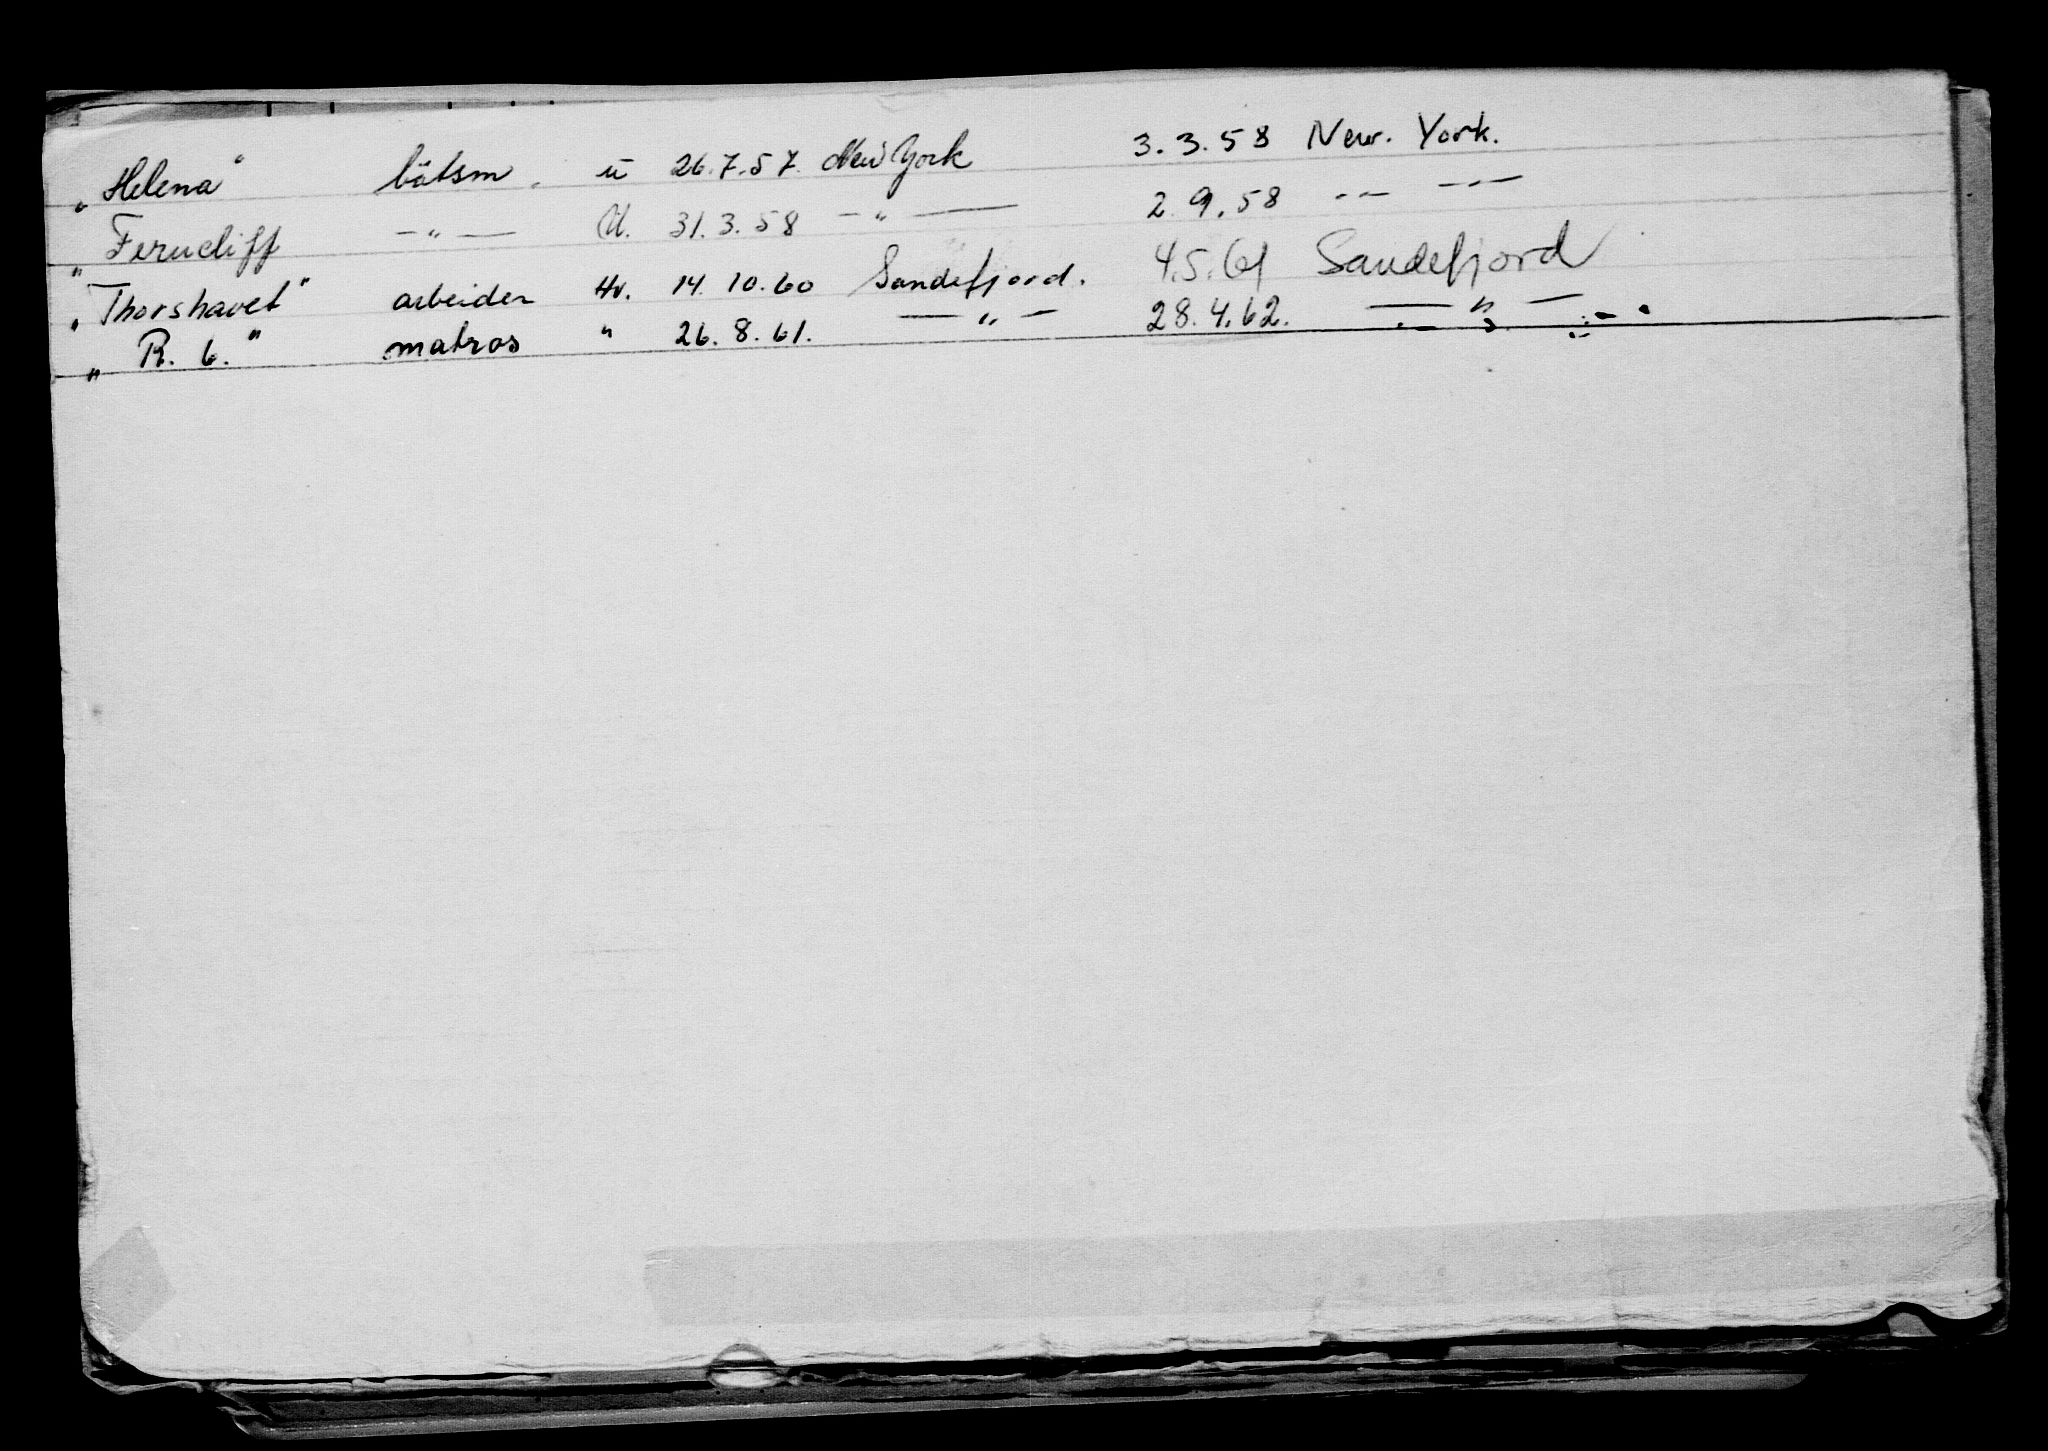 „Helena" båtsm. u 26.7.57. New York 3.3.58 New. York.
„Ferncliff —"— U. 31.3.58 —"— 2.9.58 -"- -"-
„Thorshavet" arbeider Hv. 14.10.60 Sandefjord. 4.5.61 Sandefjord
„R. 6." matros " 26.8.61. —"— 28.4.62. —"—